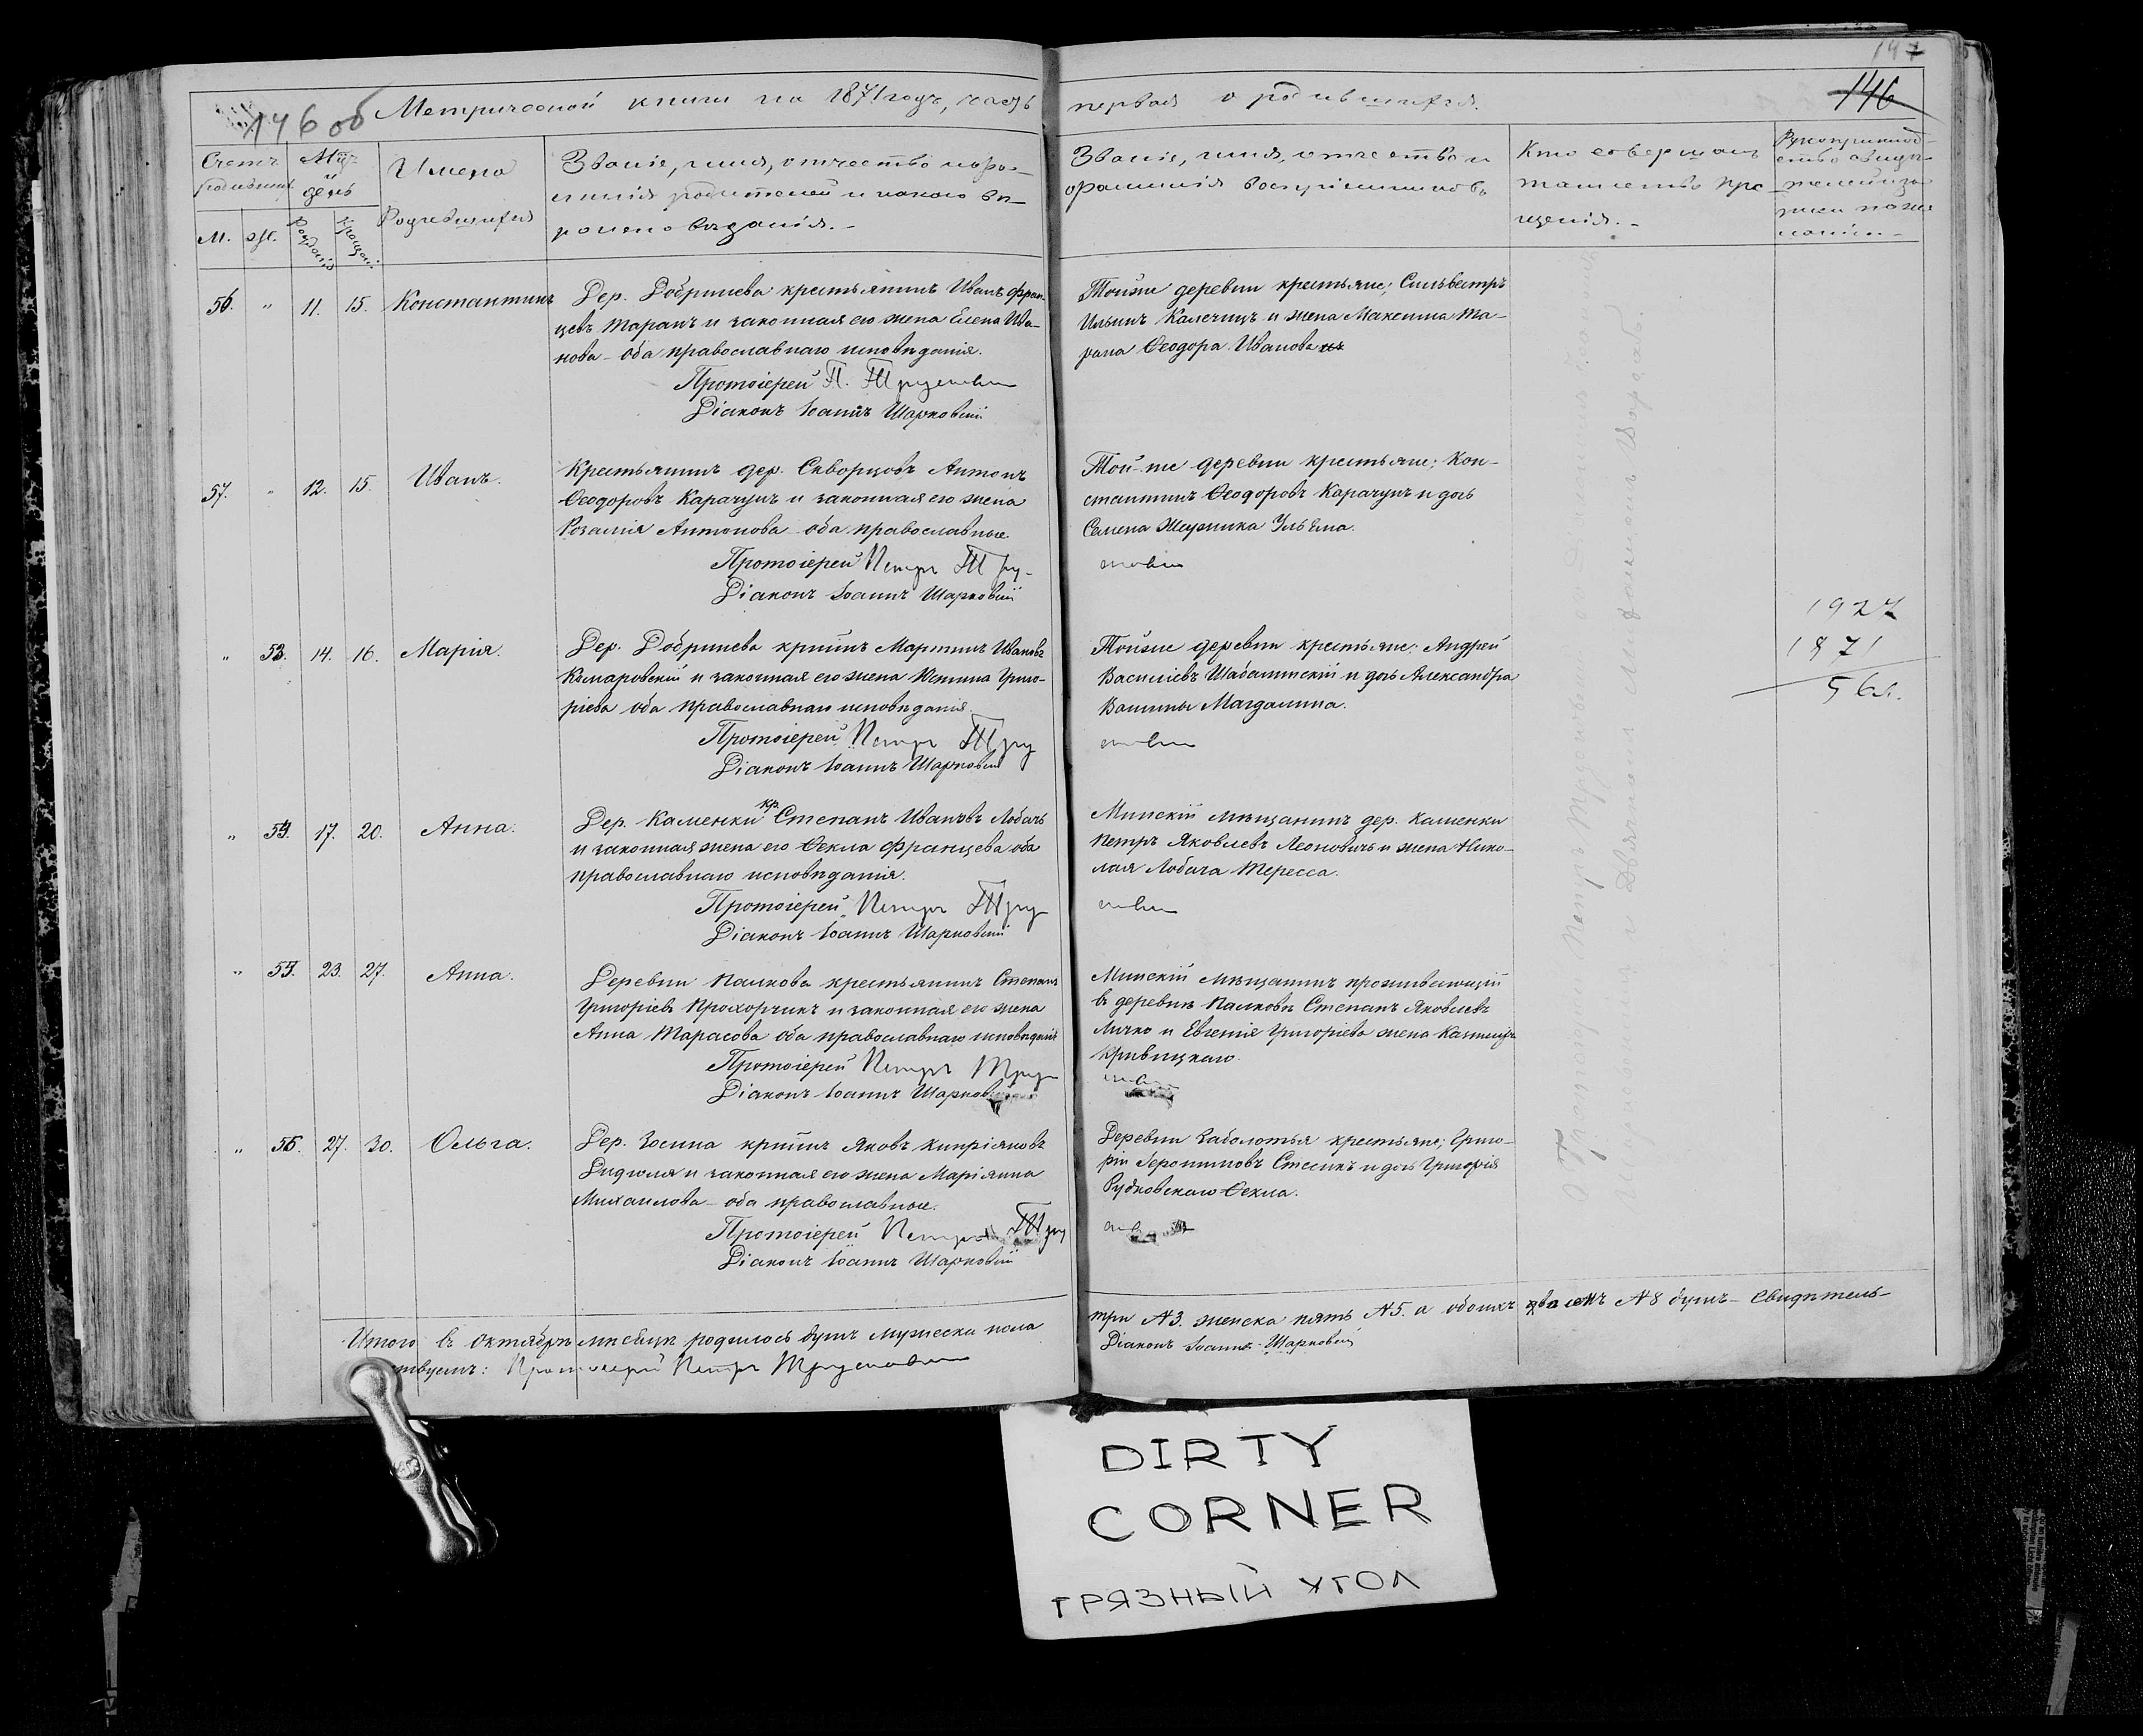 147
146
146 об
Метрической книги на 1871 годъ, часть первая о родившихся.
Счетъ родившихся
М. ж.
Мѣс. и день
Рожденія
Крещенія
Имена
Родившихся
Званіе, имя, отчество и фа-
милія родителей и какого вѣ-
роисповѣданія.-
Званіе, имя, отчество и
фамилія воспріемниковъ
Кто совершалъ
таинство кре
щенія.-
Рукоприклад-
ство свидѣ-
телей
56. " 11. 15. Константинъ
Дер. Добринева крестьянинъ Иванъ Фран-
цевъ Таранъ и законная его жена Елена Ива-
нова - оба православнаго исповѣданія.
Протоіерей П. Трусевич
Діаконъ Іоаннъ Шарковскій
Тойже деревни крестьяне; Сильвестръ
Ильинъ Калечицъ и жена Максима Та-
рана Ѳеодора Иванова
57. " 12. 15. Иванъ.
Крестьянинъ дер. Скворцовъ Антонъ
Ѳеодоровъ Карачунъ и законная его жена
Розалія Антонова - оба православные.
Протоіерей Петръ Тру-
Діаконъ Іоаннъ Шарковскій
Той-же деревни крестьяне; Кон-
стантинъ Ѳеодоровъ Карачунъ и дочь
Семена Ульяна.
" 53. 14. 16. Марія.
Дер. Добринева кр-нинъ Мартинъ Ивановъ
Комаровскій и законная его жена Юстина Григо-
ріева оба православнаго исповѣданія.
Протоіерей Петръ Тру
Діаконъ Іоаннъ Шарковскій
Тойже деревни крестьяне: Андрей
Василіевъ Шабалинскій и дочь Александра
Вашины Магдалина.
1927
1871
56 л.
" 54. 17. 20. Анна.
Дер. Каменки кр. Степанъ Ивановъ Лобачъ
и законная жена его Ѳекла Францева оба
православнаго исповѣданія.
Протоіерей Петръ Тру
Діаконъ Іоаннъ Шарковскій
Минскій мѣщанинъ дер. Каменки
Петръ Яковлевъ Леоновичъ и жена Нико-
лая Лобача Тересса.
" 55. 23. 27. Анна.
Деревни Палкова крестьянинъ Степанъ
Григоріевъ Прохорчикъ и законная его жена
Анна Тарасова оба православнаго исповѣданія
Протоіерей Петръ Тру
Діаконъ Іоаннъ Шарковскій
Минскій мѣщанинъ проживающій
въ деревнѣ Палковѣ Степанъ Яковлевъ
Личко и Евгенія Григоріева жена Казимира
Кривицкаго.
" 56. 27. 30. Ольга.
Дер. Зосина кр-нинъ Яковъ Кипріяновъ
Дидюля и законная его жена Маріянна
Михаилова - оба православные.
Протоіерей Петръ Тру
Діаконъ Іоаннъ Шарковскій
Деревни Заболотья крестьяне; Григо-
рій Іеронимовъ Стесикъ и дочь Григорія
Рудковскаго Ѳекла.
Итого въ Октябрѣ мѣсяцѣ родилось душъ мужеска пола
три №3. женска пять №5. а обоихъ половъ №8 душъ - Свидѣтель-
ствуемъ: Протоіерей Петръ Трусевич
Діаконъ Іоаннъ Шарковскій
DIRTY
CORNER
ГРЯЗНЫЙ УГОЛ